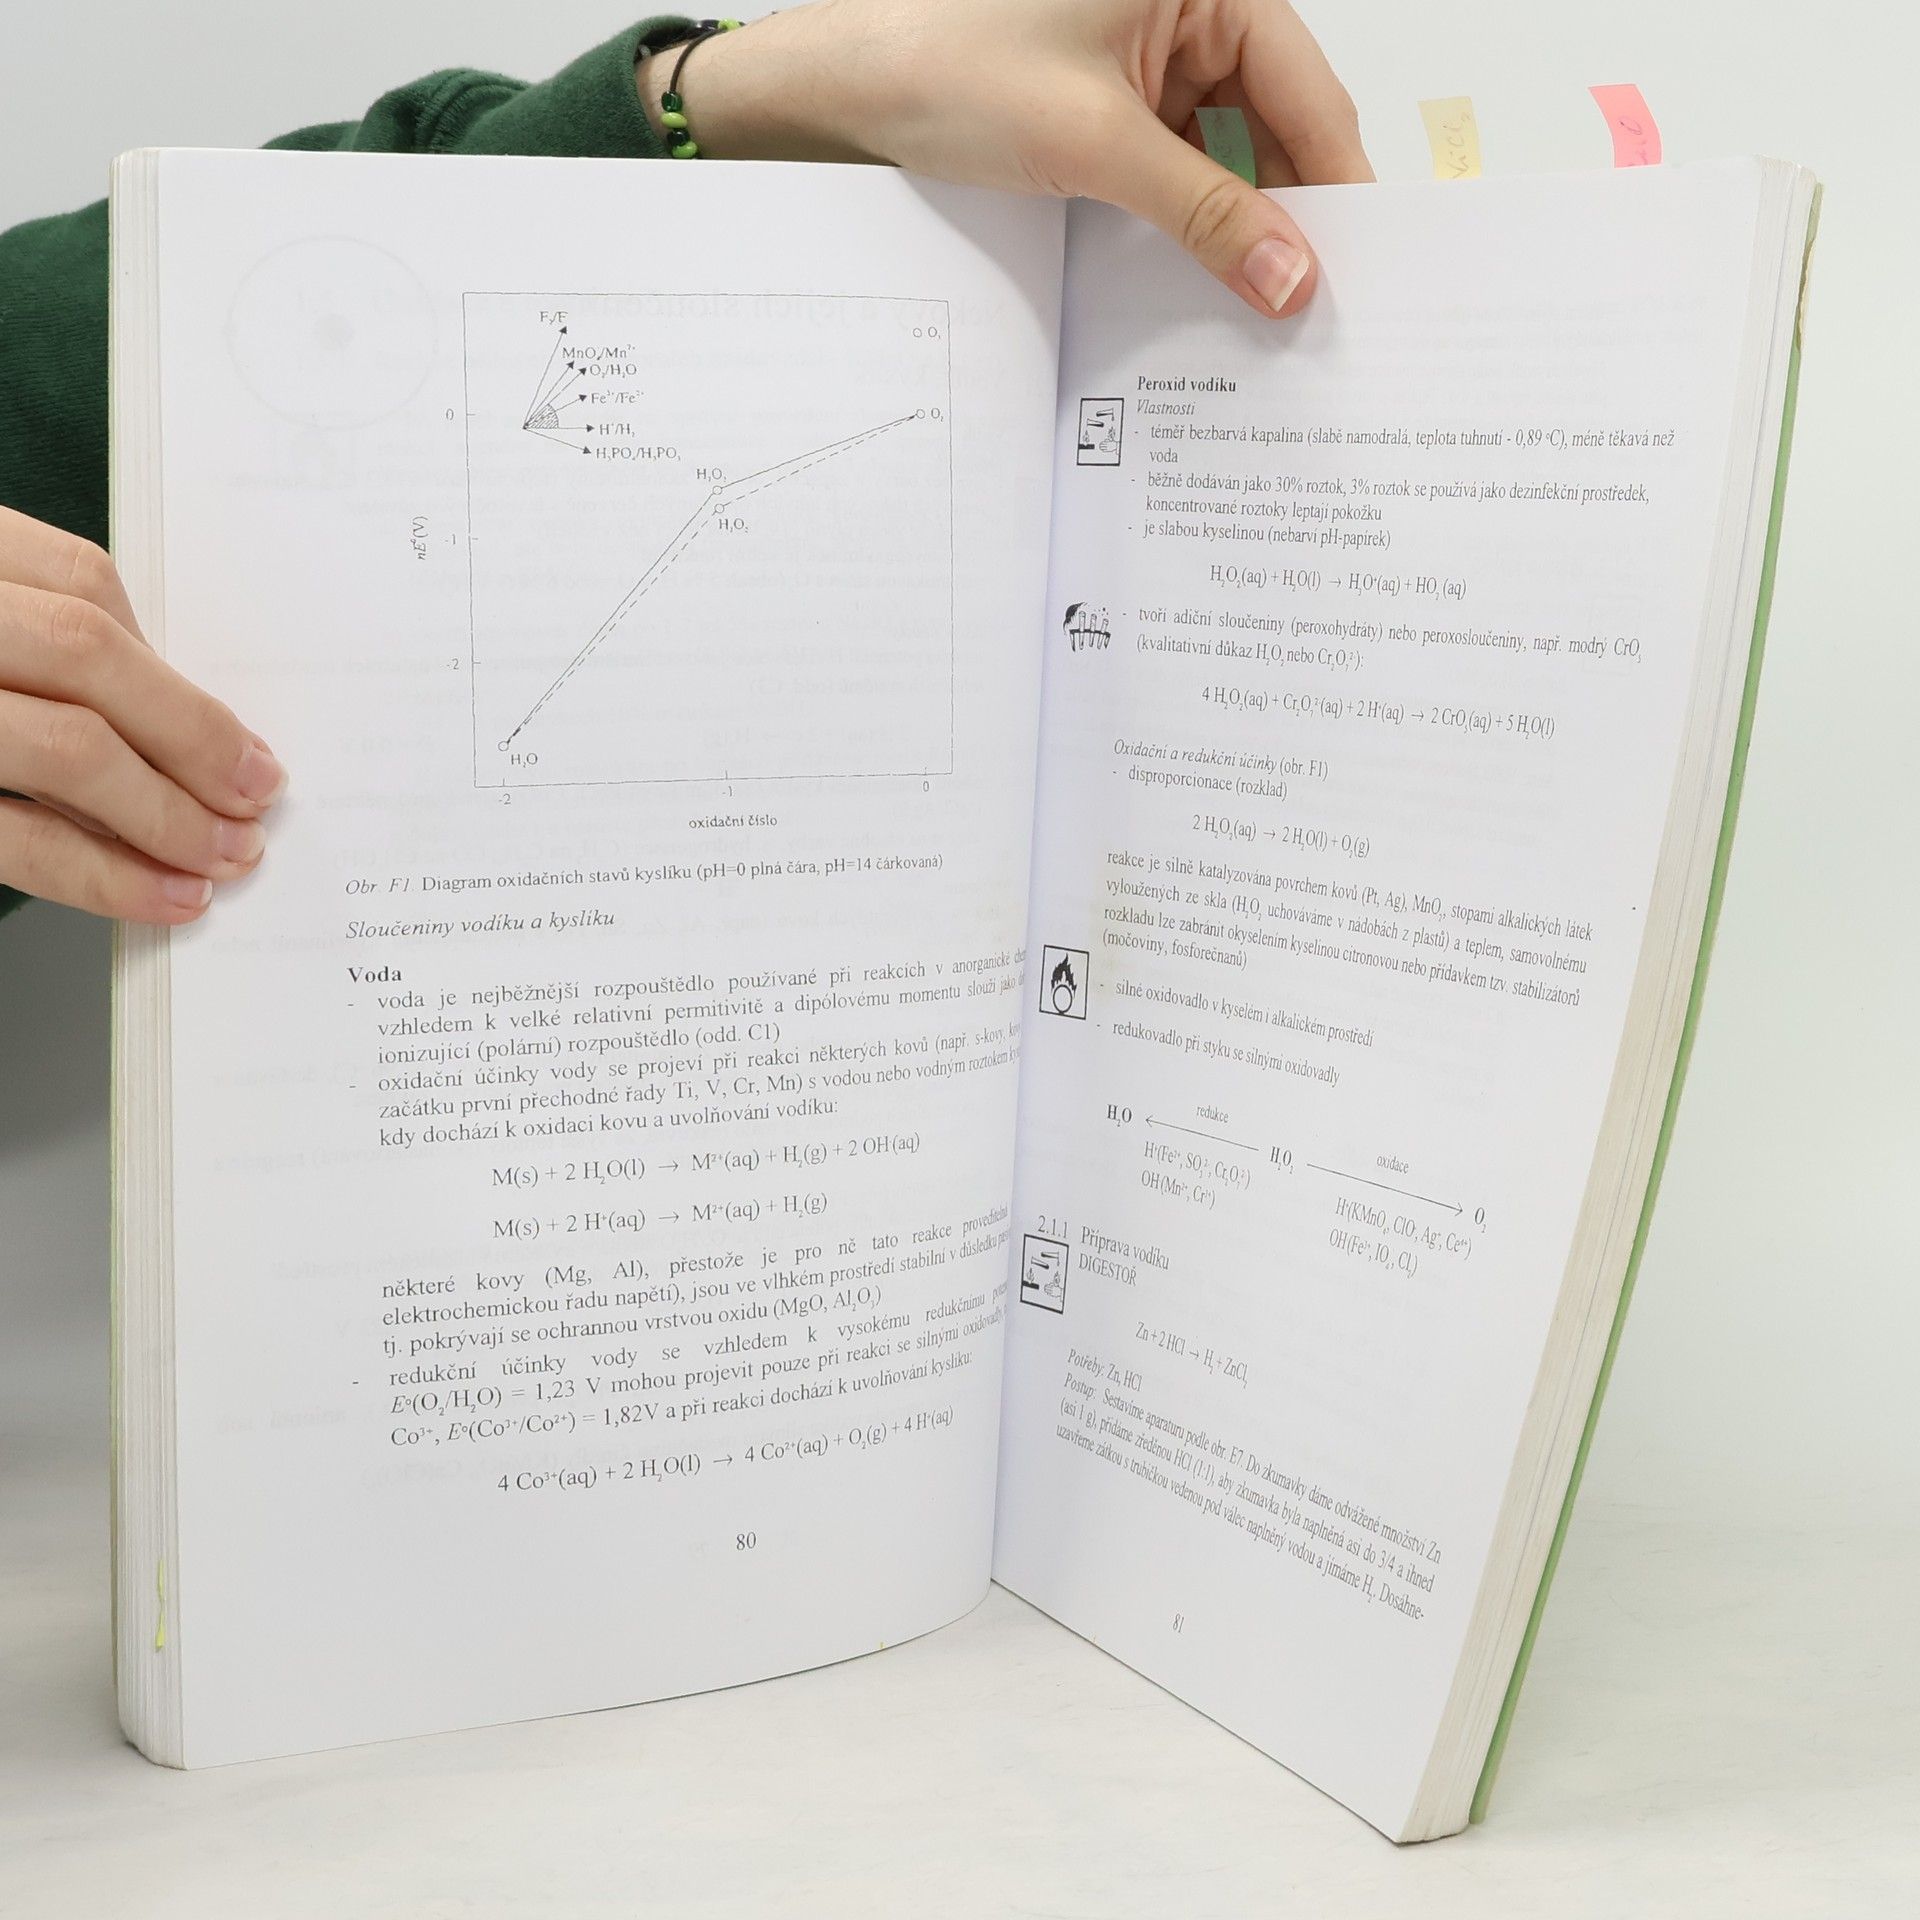 F₂/F⁻
MnO₄⁻/Mn²⁺
O₂/H₂O
Fe³⁺/Fe²⁺
H⁺/H₂
H₃PO₄/H₃PO₃
O₃
O₂
H₂O₂
H₂O₂
H₂O
0
-1
-2
nE°(V)
-2
-1
0
oxidační číslo
Obr. F1. Diagram oxidačních stavů kyslíku (pH=0 plná čára, pH=14 čárkovaná)
Sloučeniny vodíku a kyslíku
Voda
- voda je nejběžnější rozpouštědlo používané při reakcích v anorganické
vzhledem k velké relativní permitivitě a dipólovému momentu slouží jako
ionizující (polární) rozpouštědlo (odd. C1)
- oxidační účinky vody se projeví při reakci některých kovů (např. s-kovy,
začátku první přechodné řady Ti, V, Cr, Mn) s vodou nebo vodným roztokem
kdy dochází k oxidaci kovu a uvolňování vodíku:
M(s) + 2 H₂O(l) → M²⁺(aq) + H₂(g) + 2 OH⁻(aq)
M(s) + 2 H⁺(aq) → M²⁺(aq) + H₂(g)
některé kovy (Mg, Al), přestože je pro ně tato reakce proveditelná
elektrochemickou řadu napětí), jsou ve vlhkém prostředí stabilní v důsledku
tj. pokrývají se ochrannou vrstvou oxidu (MgO, Al₂O₃)
- redukční účinky vody se vzhledem k vysokému redukčnímu
E°(O₂/H₂O) = 1,23 V mohou projevit pouze při reakci se silnými oxidovadly,
Co³⁺, E°(Co³⁺/Co²⁺) = 1,82V a při reakci dochází k uvolňování kyslíku:
4 Co³⁺(aq) + 2 H₂O(l) → 4 Co²⁺(aq) + O₂(g) + 4 H⁺(aq)
80
Peroxid vodíku
Vlastnosti
- téměř bezbarvá kapalina (slabě namodralá, teplota tuhnutí - 0,89 °C), méně těkavá než
voda
- běžně dodáván jako 30% roztok, 3% roztok se používá jako dezinfekční prostředek,
koncentrované roztoky leptají pokožku
- je slabou kyselinou (nebarví pH-papírek)
H₂O₂(aq) + H₂O(l) → H₃O⁺(aq) + HO₂⁻(aq)
- tvoří adiční sloučeniny (peroxohydráty) nebo peroxosloučeniny, např. modrý CrO₅
(kvalitativní důkaz H₂O₂ nebo Cr₂O₇²⁻):
4 H₂O₂(aq) + Cr₂O₇²⁻(aq) + 2 H⁺(aq) → 2 CrO₅(aq) + 5 H₂O(l)
Oxidační a redukční účinky (obr. F1)
- disproporcionace (rozklad)
2 H₂O₂(aq) → 2 H₂O(l) + O₂(g)
reakce je silně katalyzována povrchem kovů (Pt, Ag), MnO₂, stopami alkalických látek
vyloužených ze skla (H₂O₂ uchováváme v nádobách z plastů) a teplem, samovolnému
rozkladu lze zabránit okyselením kyselinou citronovou nebo přídavkem tzv. stabilizátorů
(močoviny, fosforečnanů)
- silné oxidovadlo v kyselém i alkalickém prostředí
- redukovadlo při styku se silnými oxidovadly
H₂O ← redukce H₂O₂ oxidace → O₂
H⁺(Fe²⁺, SO₃²⁻, Cr₂O₇²⁻)
OH⁻(Mn²⁺, Cr³⁺)
H⁺(KMnO₄, ClO⁻, Ag⁺, Ce⁴⁺)
OH⁻(Fe³⁺, IO₄⁻, Cl₂)
2.1.1 Příprava vodíku
DIGESTOŘ
Zn + 2 HCl → H₂ + ZnCl₂
Potřeby: Zn, HCl
Postup: Sestavíme aparaturu podle obr. E7. Do zkumavky dáme odvážené množství Zn
(asi 1 g), přidáme zředěnou HCl (1:1), aby zkumavka byla naplněná asi do 3/4 a ihned
uzavřeme zátkou s trubičkou vedenou pod válec naplněný vodou a jímáme H₂. Dosáhne-
81